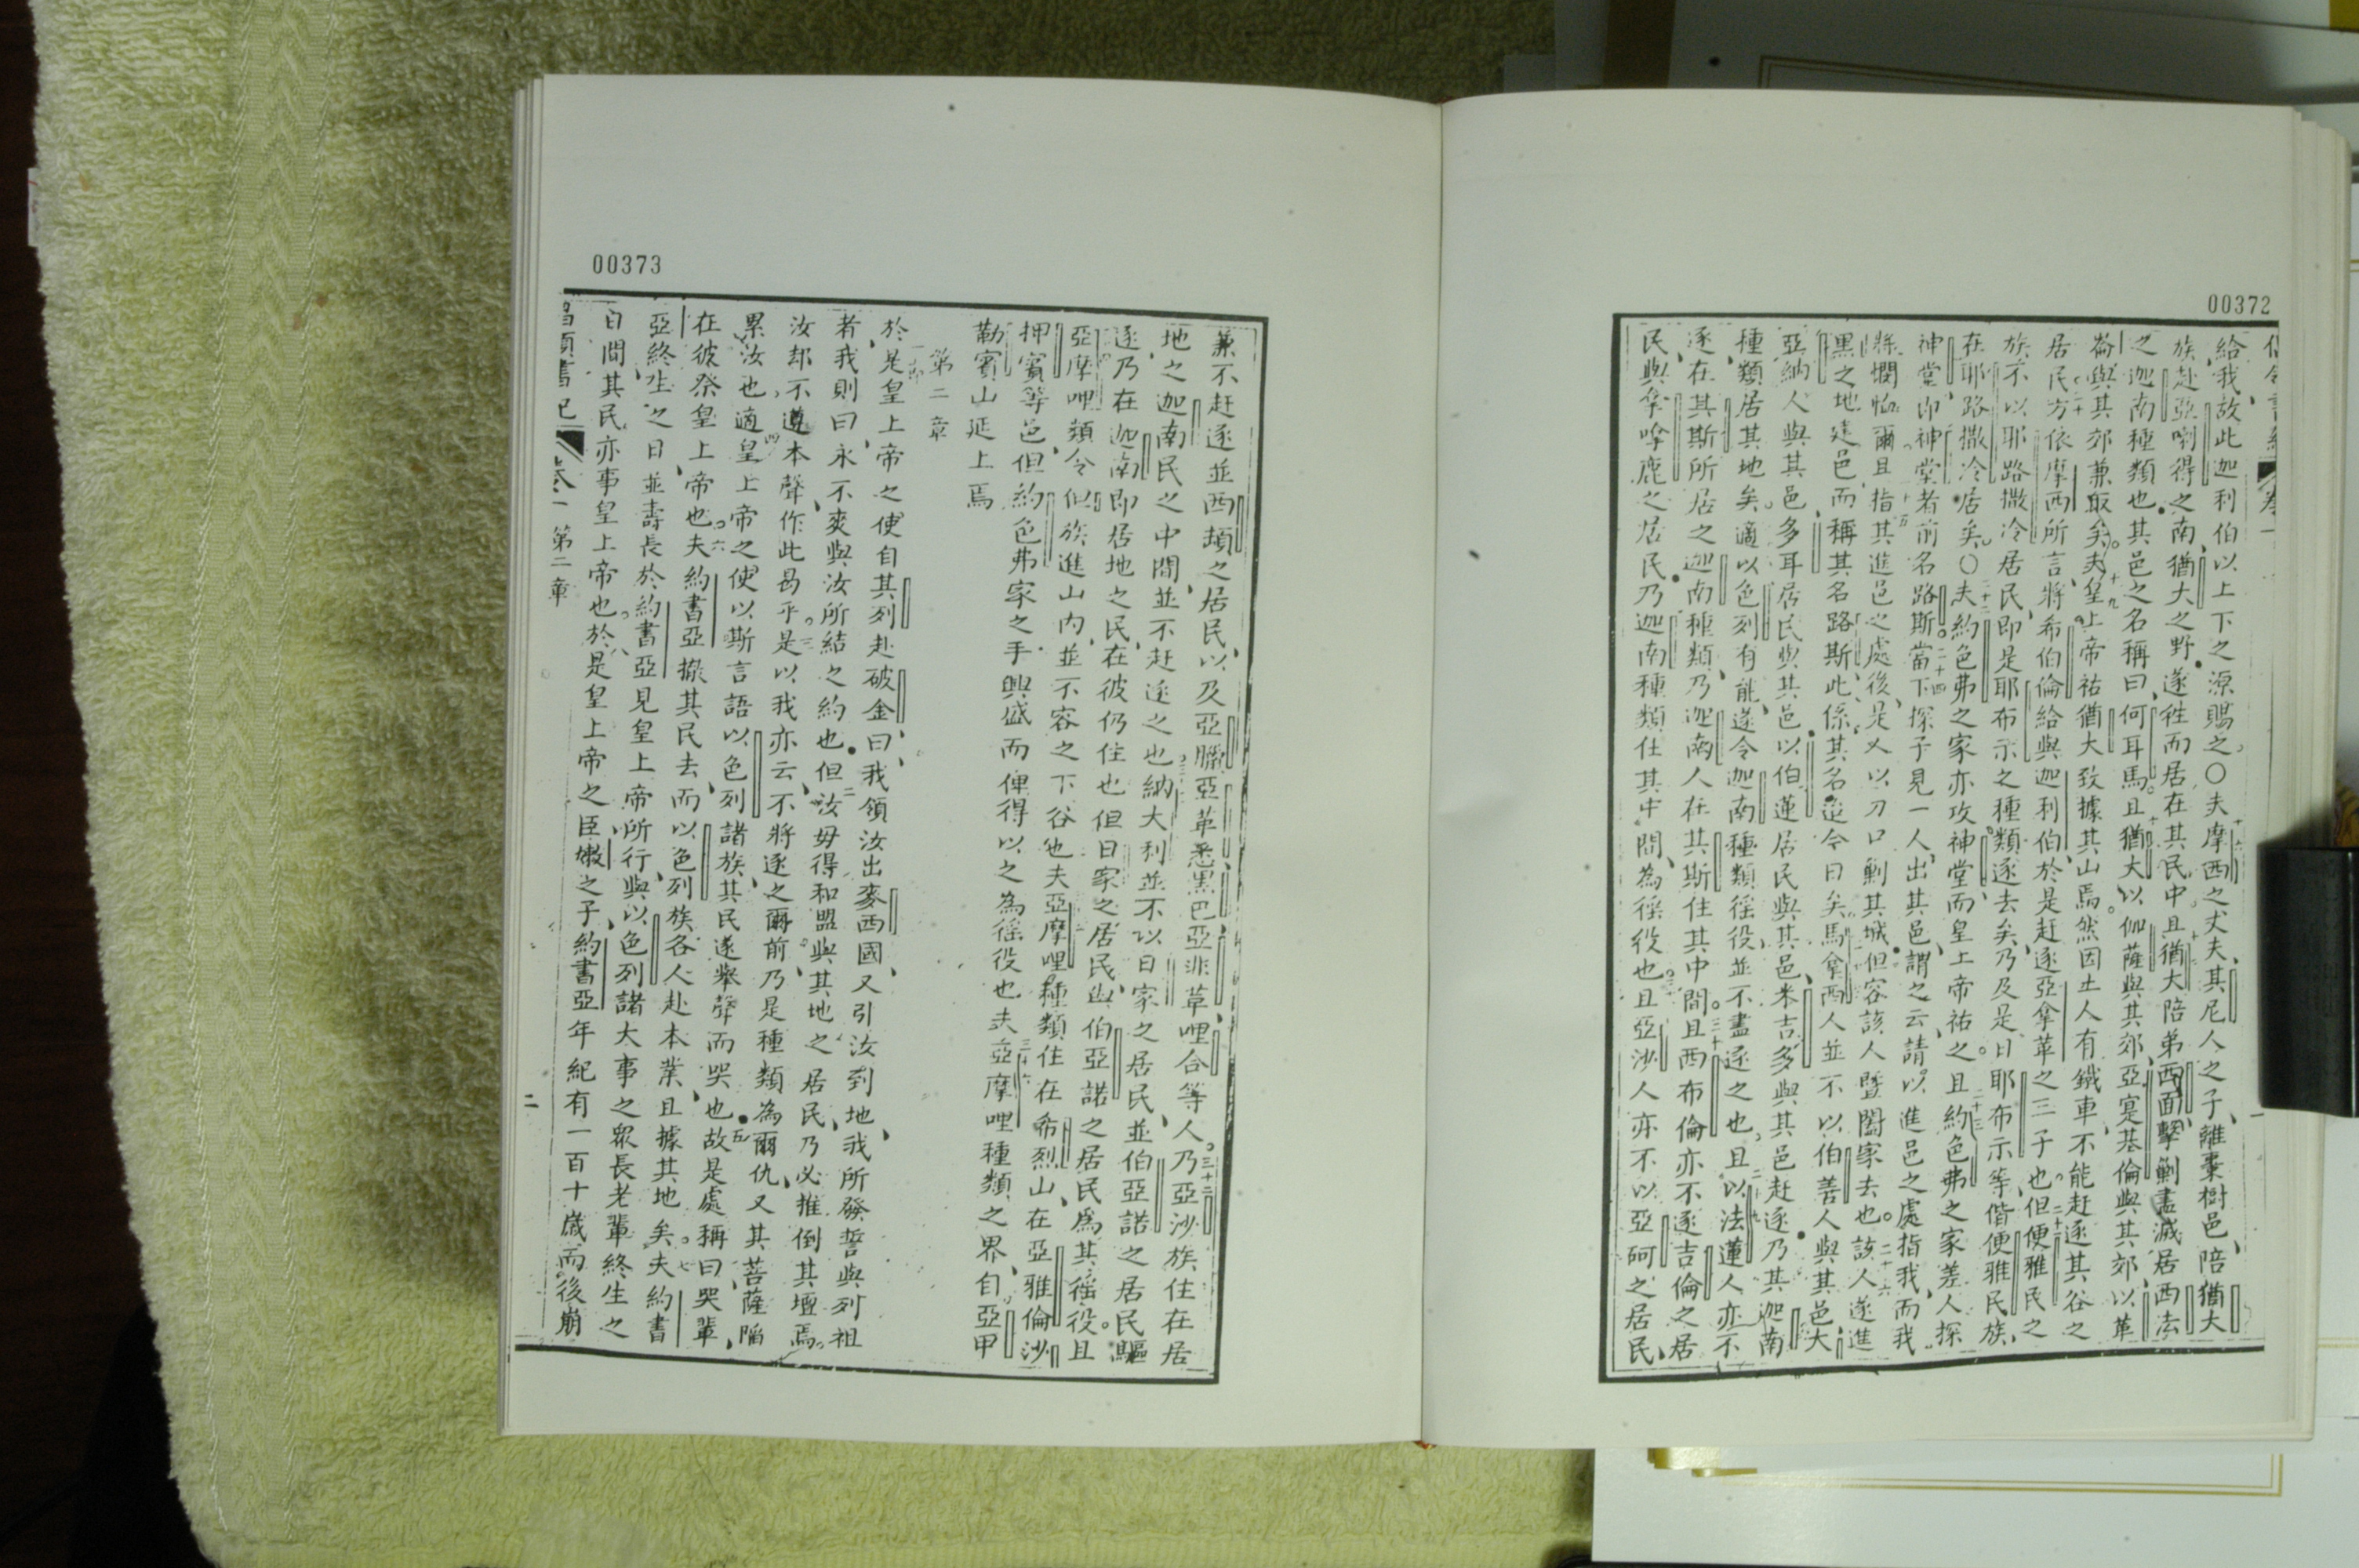 00372
給我故此迦利伯以上下之源賜之〇夫摩西之丈夫其尼人之子離棗樹邑陪猶大
族赴亞喇得之南猶大之野遂徃而居在其民中且猶大陪弟西面擊勦盡滅居西法
之迦南種類也其邑之名稱曰何耳馬且猶大以伽薩與其郊亞寔基倫與其郊以革
崙與其郊兼取矣夫皇上帝祐猶大致據其山焉然因土人有鐵車不能赶逐其谷之
居民方依摩西所言將希伯倫給與迦利伯於是赶逐亞拿革之三子也但便雅民之
族不以耶路撒冷居民即是耶布示之種類逐去矣乃及是日耶布示等偕便雅民族
在耶路撒冷居矣〇夫約色弗之家亦攻神堂而皇上帝祐之且約色弗之家差人探
神堂即神堂者前名路斯當下探子見一人出其邑謂之云請以進邑之處指我而我
將憫恤爾且指其進邑之處後是乂以刀口剿其城但容該人曁闔家去也該人遂進
黑之地建邑而稱其名路斯此係其名迄今日矣馬拿西人並不以伯善人與其邑大
亞納人與其邑多耳居民與其邑以伯蓮居民與其邑米吉多與其邑赶逐乃其迦南
種類居其地矣適以色列有能遂令迦南種類徭役並不盡逐之也且以法蓮人亦不
逐在其斯所居之迦南種類乃迦南人在其斯住其中間且西布倫亦不逐吉倫之居
民與拿哈鹿之居民乃迦南種類住其中間為徭役也且亞沙人亦不以亞砢之居民
00373
兼不赶逐並西頓之居民以及亞臈亞革悉黑巴亞非革哩合等人乃亞沙族住在居
地之迦南民之中間並不赶逐之也納大利並不以日家之居民並伯亞諾之居民驅
逐乃在迦南即居地之民在彼仍住也但日家之居民與伯亞諾之居民爲其徭役且
亞摩哩類令但族進山內並不容之下谷也夫亞摩哩種類住在希烈山在亞雅倫沙
押賓等邑但約色弗家之手興盛而俾得以之為徭役也夫亞摩哩種類之界自亞甲
勒賓山延上焉
第二章
於是皇上帝之使自其列赴破金曰我領汝出麥西國又引汝到地我所發誓與列祖
者我則曰永不爽與汝所結之約也但汝毋得和盟與其地之居民乃必推倒其壇焉
汝却不遵本聲作此曷乎是以我亦云不將逐之爾前乃是種類為爾仇又其菩薩陷
累汝也適皇上帝之使以斯言語以色列諸族其民遂舉聲而哭也故是處稱曰哭輩
在彼祭皇上帝也夫約書亞撥其民去而以色列族各人赴本業且據其地矣夫約書
亞終生之日並壽長於約書亞見皇上帝所行與以色列諸大事之眾長老輩終生之
日間其民亦事皇上帝也於是皇上帝之臣嫩之子約書亞年紀有一百十歲而後崩
第二章
二